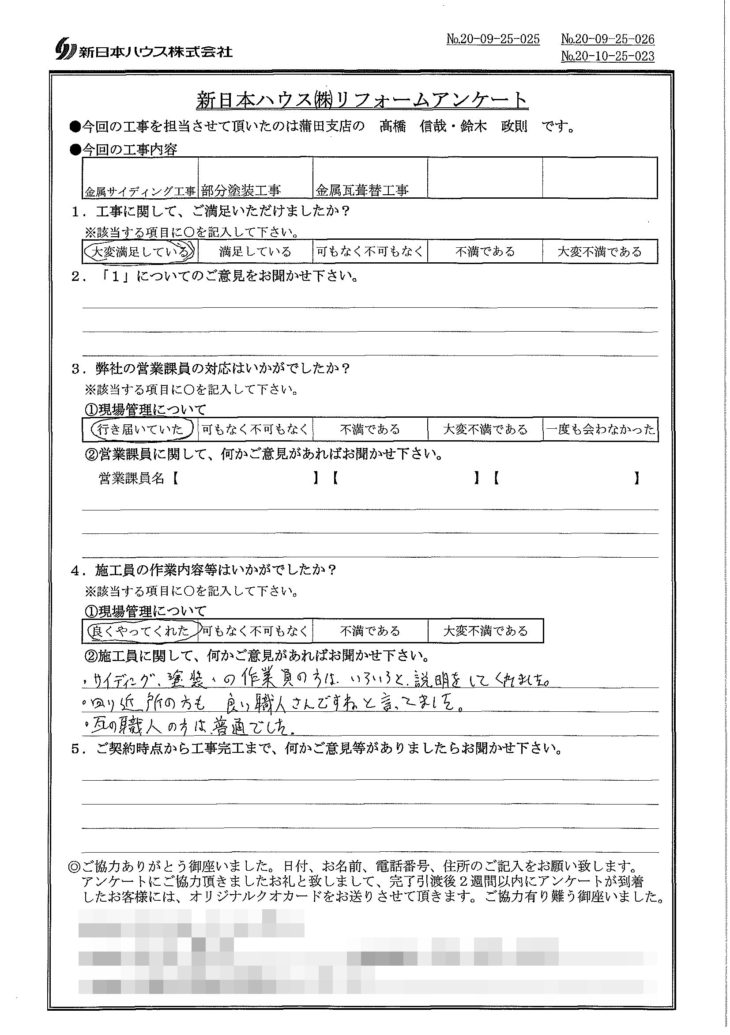 新日本ハウス株式会社
№20-09-25-025 №20-09-25-026
№20-10-25-023
新日本ハウス㈱リフォームアンケート
●今回の工事を担当させて頂いたのは蒲田支店の 髙橋 信哉・鈴木 政則 です。
●今回の工事内容
金属サイディング工事 部分塗装工事 金属瓦葺替工事
1．工事に関して、ご満足いただけましたか？
※該当する項目に○を記入して下さい。
大変満足している 満足している 可もなく不可もなく 不満である 大変不満である
2．「1」についてのご意見をお聞かせ下さい。
3．弊社の営業課員の対応はいかがでしたか？
※該当する項目に○を記入して下さい。
①現場管理について
行き届いていた 可もなく不可もなく 不満である 大変不満である 一度も会わなかった
②営業課員に関して、何かご意見があればお聞かせ下さい。
営業課員名【 】【 】【 】
4．施工員の作業内容等はいかがでしたか？
※該当する項目に○を記入して下さい。
①現場管理について
良くやってくれた 可もなく不可もなく 不満である 大変不満である
②施工員に関して、何かご意見があればお聞かせ下さい。
・サイディング、塗装、の作業員の方は、いろいろと、説明をしてくれました。
・回り近所の方も 良い職人さんですねと言ってました。
・瓦の職人の方は普通でした。
5．ご契約時点から工事完工まで、何かご意見等がありましたらお聞かせ下さい。
◎ご協力ありがとう御座いました。日付、お名前、電話番号、住所のご記入をお願い致します。
アンケートにご協力頂きましたお礼と致しまして、完了引渡後2週間以内にアンケートが到着
したお客様には、オリジナルクオカードをお送りさせて頂きます。ご協力有り難う御座いました。